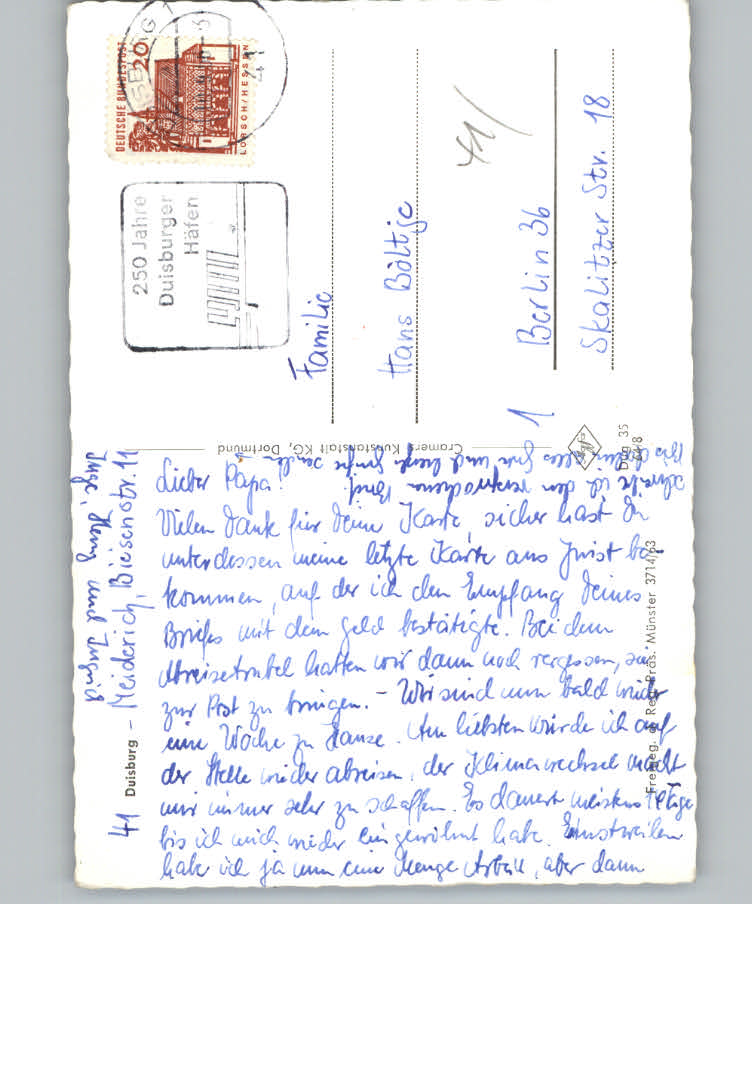 41 Duisburg - Meiderich, Biesenstr. 11
Lieber Papa!
Vielen Dank für Deine Karte, sicher hast Du
unterdessen meine letzte Karte aus Juist be-
kommen, auf der ich den Empfang Deines
Briefes mit dem Geld bestätigte. Bei dem
Abreisetrubel hatten wir dann noch vergessen, sie
zur Post zu bringen. - Wir sind nun bald wieder
eine Woche zu Hause. Am liebsten würde ich auf
der Stelle wieder abreisen, der Klimawechsel macht
mir immer sehr zu schaffen. Es dauert meistens Tage
bis ich mich wieder eingewöhnt habe. Einstweilen
habe ich ja nun eine Menge Arbeit, aber dann
schreibe ich den versprochenen Brief.
Bis dahin alles Gute und herzl. Grüße senden
Inge, Henry und Ingrid
Cramers Kunstanstalt KG, Dortmund
Dug 35
618
Freigeg. d. Reg. Präs. Münster 3714/63
DEUTSCHE BUNDESPOST
20
LORSCH/HESSEN
250 Jahre
Duisburger
Häfen
41/
Familie
Hans Böltje
1 Berlin 36
Skalitzer Str. 18